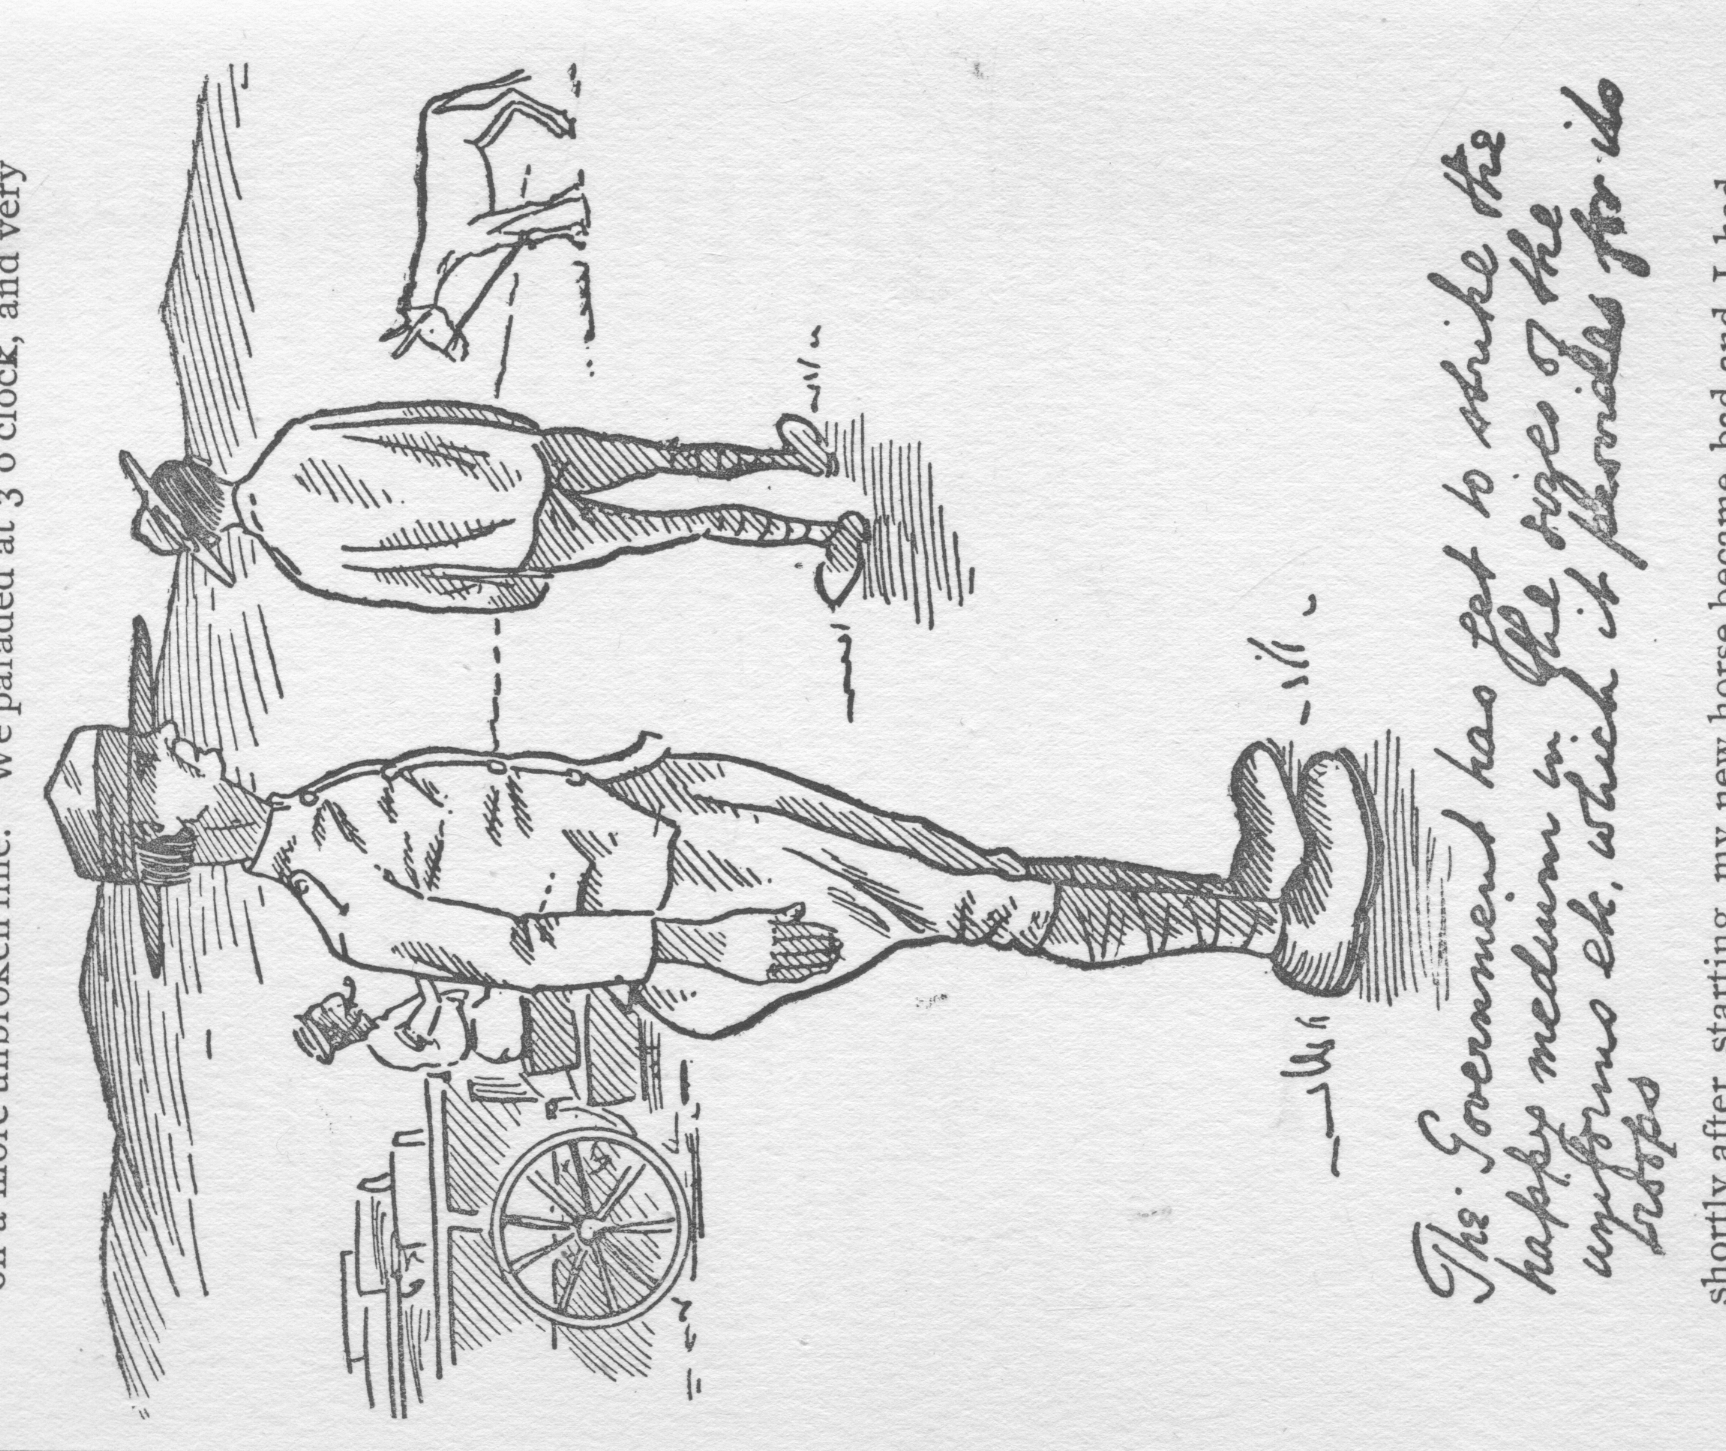 on a more unbroken We paraded at 3 o'clock, and very
The Government has yet to strike the
happy medium in the sizes of the
uniforms etc, which it provides for its
troops
shortly after starting, my new horse became and I had